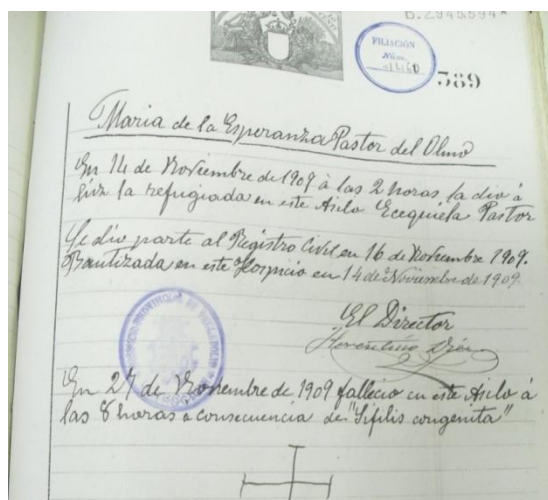 B.2945594
FILIACIÓN
Núm.
389
Maria de la Esperanza Pastor del Olmo
En 14 de Noviembre de 1909 à las 2 horas, la dió à
luz la refugiada en este Asilo Ecequiela Pastor
Se dio parte al Registro Civil en 16 de Noviembre 1909.
Bautizada en este Hospicio en 14 de Noviembre de 1909.
El Director
HOSPICIO PROVINCIAL DE VALLADOLID
En 27 de Noviembre de 1909 falleció en este Asilo à
las 8 horas a consecuencia de "Sifilis congenita"